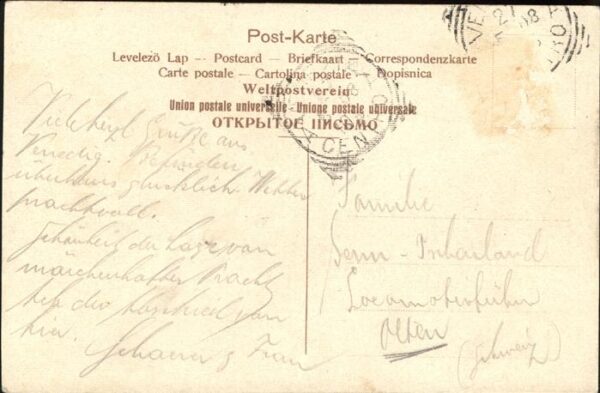 Post-Karte
Levelezö Lap — Postcard — Briefkaart — Correspondenzkarte
Carte postale — Cartolina postale — Dopisnica
Weltpostverein
Union postale universelle - Unione postale universale
ОТКРЫТОЕ ПИСЬМО
VE
21
08
CENTRO
Viele herzl Grüße aus
Venedig. Befinden
überaus glücklich. Wetter
prachtvoll.
Schönheit der Lage von
märchenhafter Pracht
hier.
Schaerer & Frau
Familie
Senn-
Locomotivführer
Olten
(Schweiz)